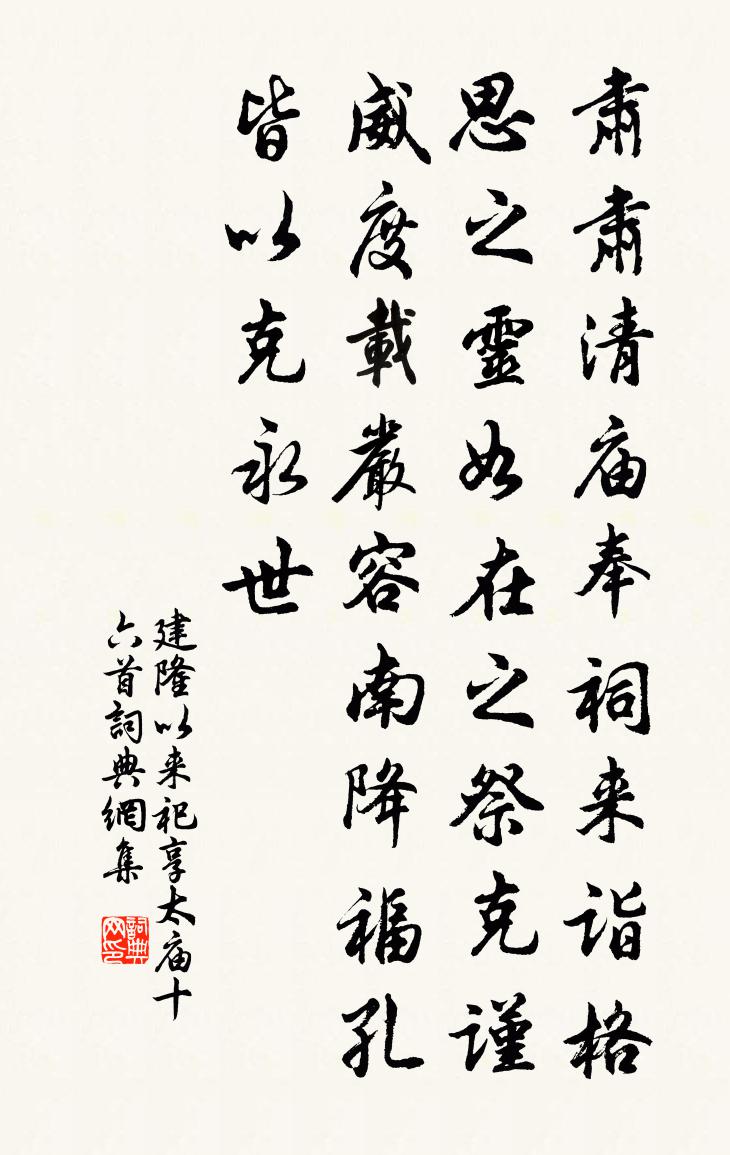 肅肅清庙奉祠来诣格
思之靈如在之祭克謹
威度載嚴容南降福孔
皆以克永世
建隆以来祀享太庙十
六首詞典網集
詞典网印